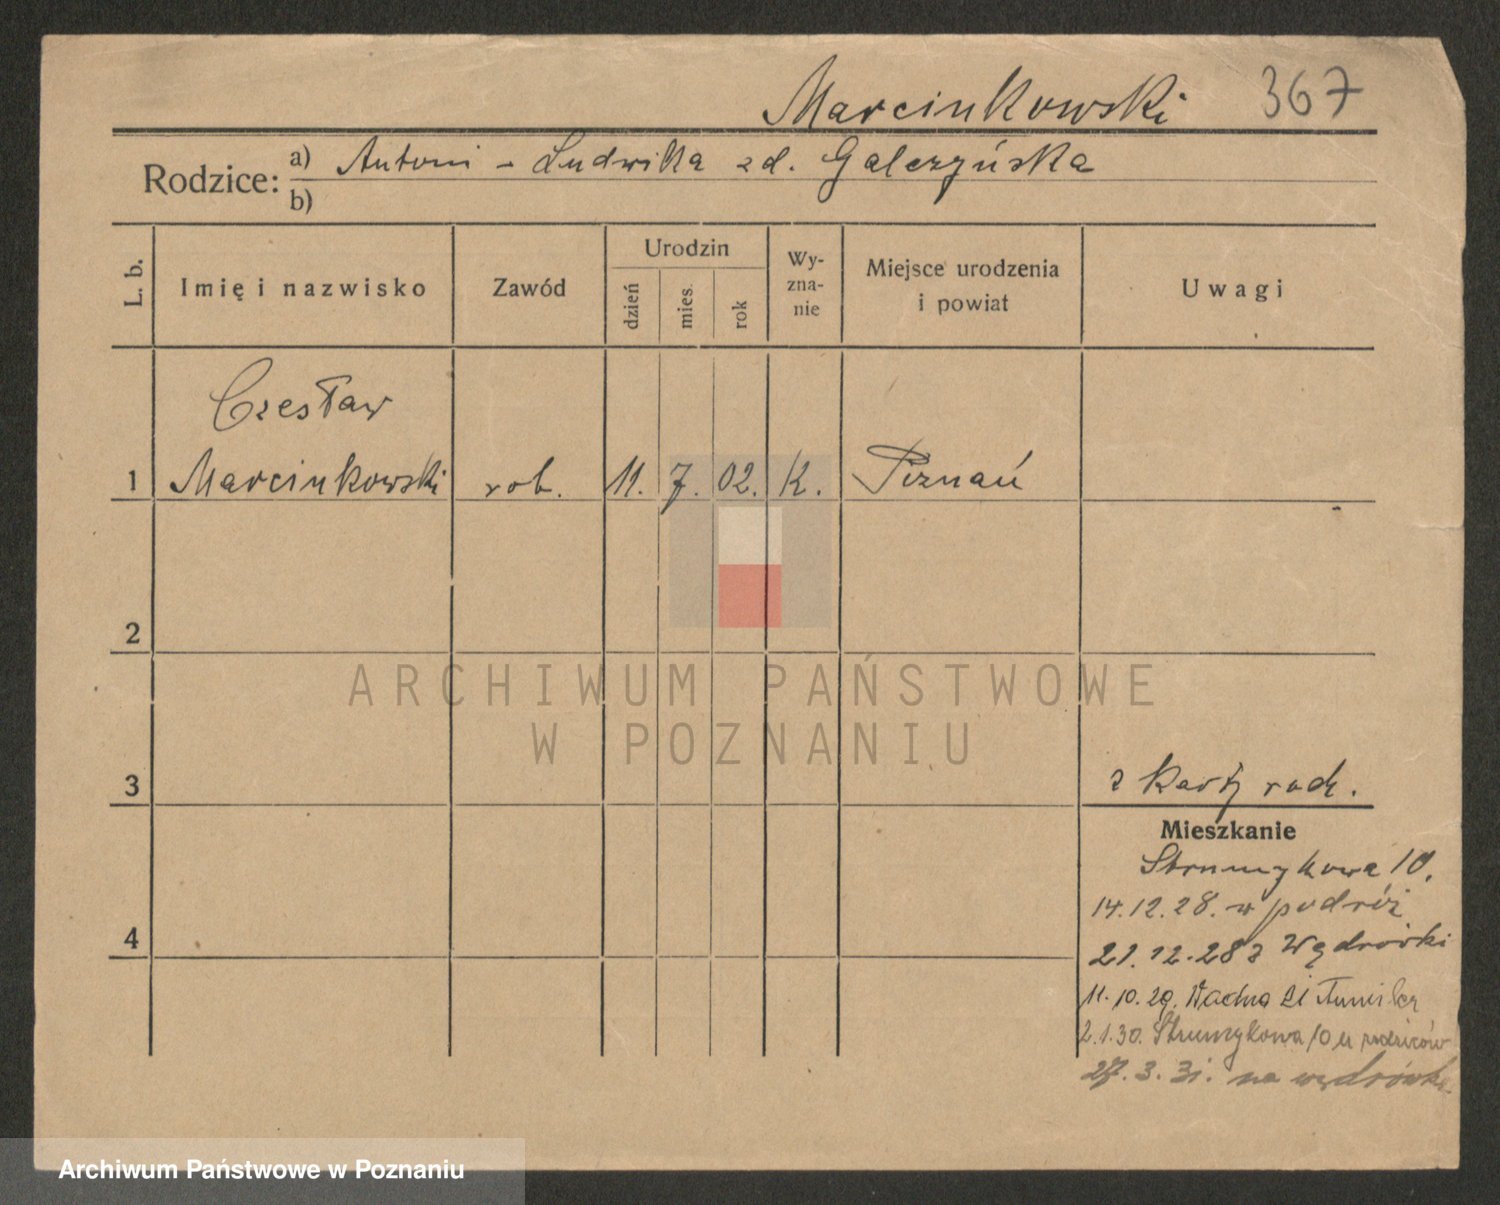 Marcinkowski 367
Rodzice: a) Antoni - Ludwika zd. Galczyńska
b)
L. b.
Imię i nazwisko
Zawód
Urodzin
dzień
mies.
rok
Wy-
zna-
nie
Miejsce urodzenia
i powiat
Uwagi
Czesław
1 Marcinkowski rob. 11. 7. 02. K. Poznań
2
ARCHIWUM PAŃSTWOWE
W POZNANIU
3
z karty rodz.
Mieszkanie
Strumykowa 10.
14.12.28. w podróż
4
21.12.28 z wędrówki
11.10.29. Wadna 21
2.1.30. Strumykowa 10 u rodziców
27.3.31. na wędrówkę
Archiwum Państwowe w Poznaniu